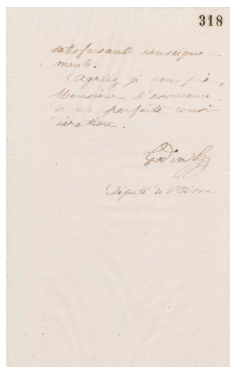 318
satisfaisant renseigne-
ments.
Agréez je vous prie,
Monsieur l'assurance
de ma parfaite consi
dération.
Godin
Député de l'Aisne